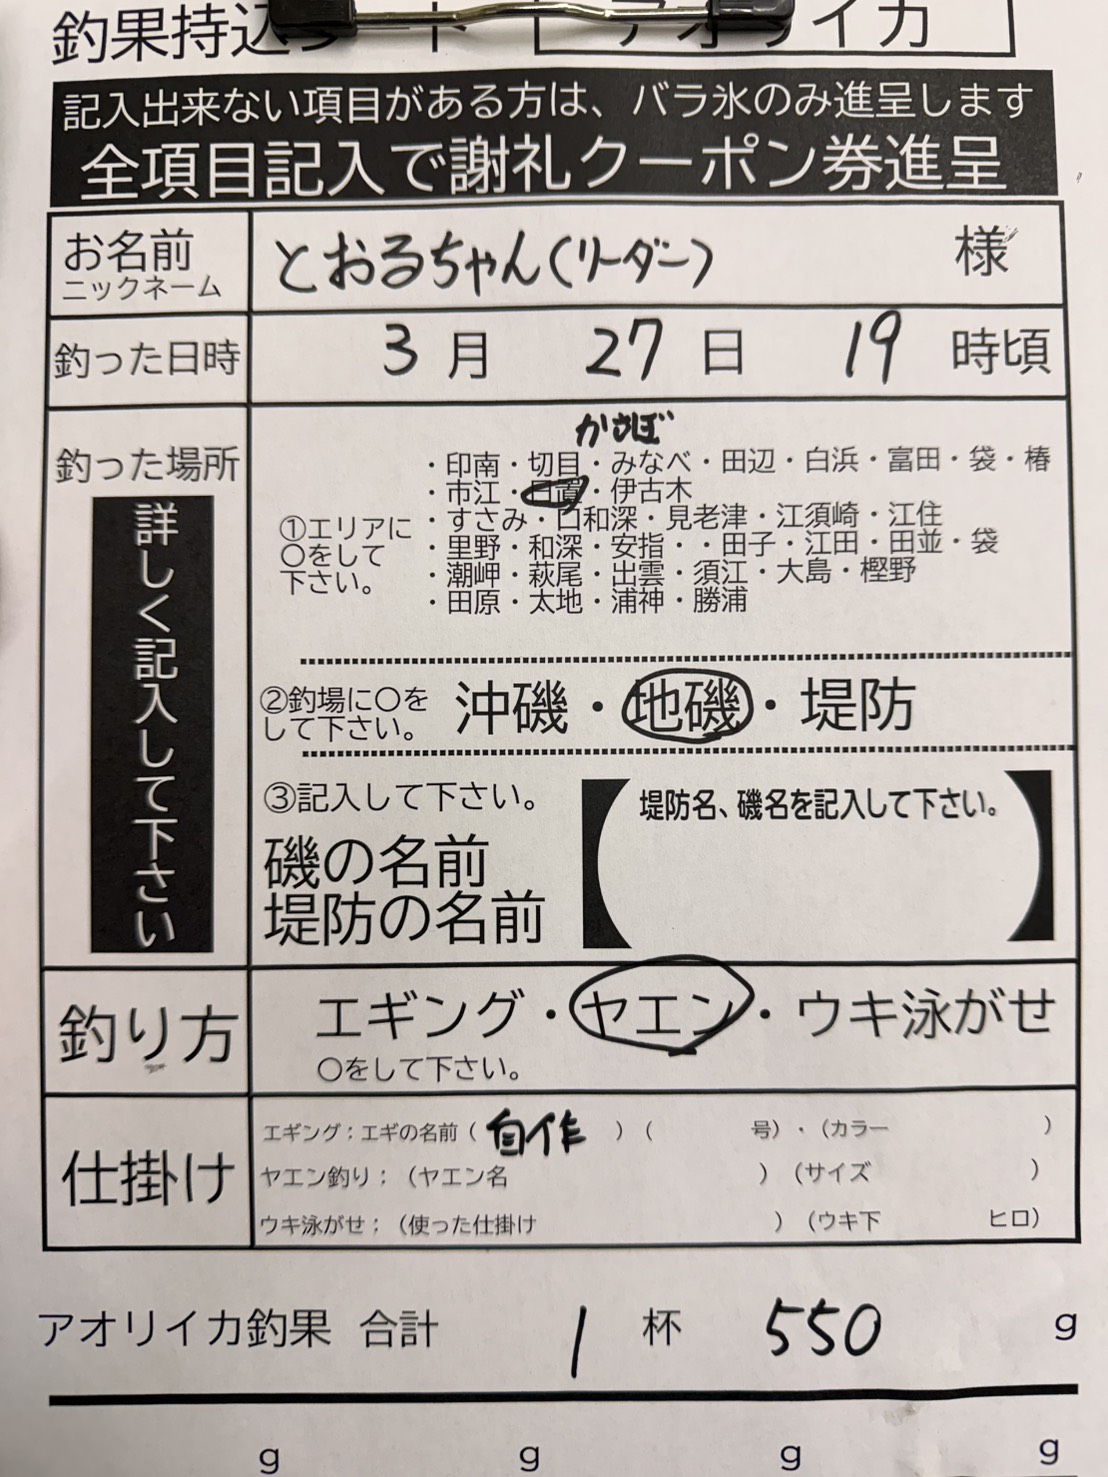 釣果持込シート アオリイカ
記入出来ない項目がある方は、バラ氷のみ進呈します
全項目記入で謝礼クーポン券進呈
お名前
ニックネーム
とおるちゃん(リーダー) 様
釣った日時 3月 27日 19時頃
釣った場所
詳しく記入して下さい
かさぼ
①エリアに
○をして
下さい。
・印南・切目・みなべ・田辺・白浜・富田・袋・椿
・市江・日置・伊古木
・すさみ・口和深・見老津・江須崎・江住
・里野・和深・安指・・田子・江田・田並・袋
・潮岬・萩尾・出雲・須江・大島・樫野
・田原・太地・浦神・勝浦
②釣場に○を
して下さい。
沖磯・地磯・堤防
③記入して下さい。
磯の名前
堤防の名前
堤防名、磯名を記入して下さい。
釣り方
エギング・ヤエン・ウキ泳がせ
○をして下さい。
仕掛け
エギング；エギの名前（自作）（ 号）・（カラー ）
ヤエン釣り；（ヤエン名 ）（サイズ ）
ウキ泳がせ；（使った仕掛け ）（ウキ下 ヒロ）
アオリイカ釣果 合計 1 杯 550 g
g g g g